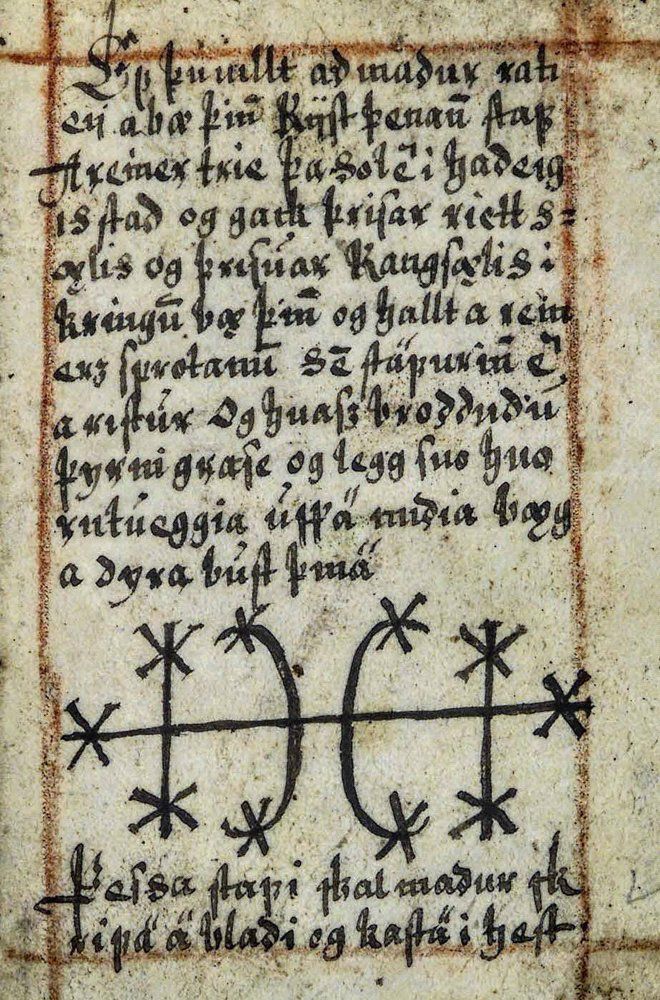 Ef þu villt ad madur rati
ei a bæ þinn Ryst þenann staf
A reiner trie þa sol er i hadeig
is stad og gack þrisar riett s=
ælis og þrisuar Rangsælis i
kringū bæ þin̄ og hallt a rein
erz sprotanū sē stäpurin̄ ē
a ristur Og huasz broddudū
þyrni grase og legg suo huo
rutueggia uppä midia bæg
a dyra bust þinä
Þessa stapi skal madur sk
ripä ä bladi og kastä i hest